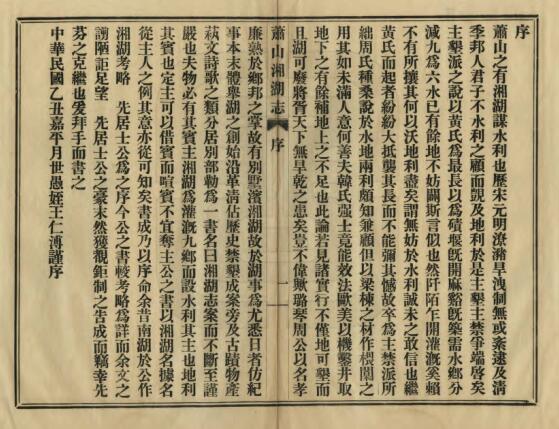 序
蕭山之有湘湖謀水利也歷宋元明潦瀦旱洩制無或紊逮及清
季邦人君子不水利之顧而說及地利於是主墾主禁爭端啓矣
主墾派之說以黃氏爲最長以爲磧堰旣開麻谿旣築需水鄉分
減九爲六水已有餘地不妨闢斯言似也然阡陌乍開灌漑奚賴
不有所攘其何以沃地利盡矣謂無妨於水利誠未之敢信也繼
黃氏而起者紛紛大抵襲其長而不能彌其憾故卒爲主禁派所
絀周氏種桑說於水地兩利頗知兼顧但以梁棟之材作椳闑之
用其如未滿人意何善夫韓氏强士竟能效法歐美以機鑿井取
地下之有餘補地上之不足也此論若見諸實行不僅地可墾而
且湖可廢將胥天下無旱乾之患矣豈不偉歟璐琴周公以名孝
蕭山湘湖志
序
一
廉熟於鄉邦之掌故有別墅濱湘湖故於湖事爲尤悉日者仿紀
事本末體舉湖之創始沿革淸佔歷史禁墾成案旁及古蹟物產
萟文詩歌之類分居別部勒爲一書名曰湘湖志案而不斷至謹
嚴也夫物必有其賓主湘湖爲灌漑九鄉而設水利其主也地利
其賓也定主可以借賓而喧賓不宜奪主公之書以湘湖名據名
從主人之例其意亦從可知矣書成乃以序命余昔南湖於公作
湘湖考略
先居士公爲之序今公之書較考略爲詳而余文之
謭陋詎足望
先居士公之豪末然獲觀鉅制之告成而竊幸先
芬之克繼也爰拜手而書之
中華民國乙丑嘉平月世愚姪王仁溥謹序